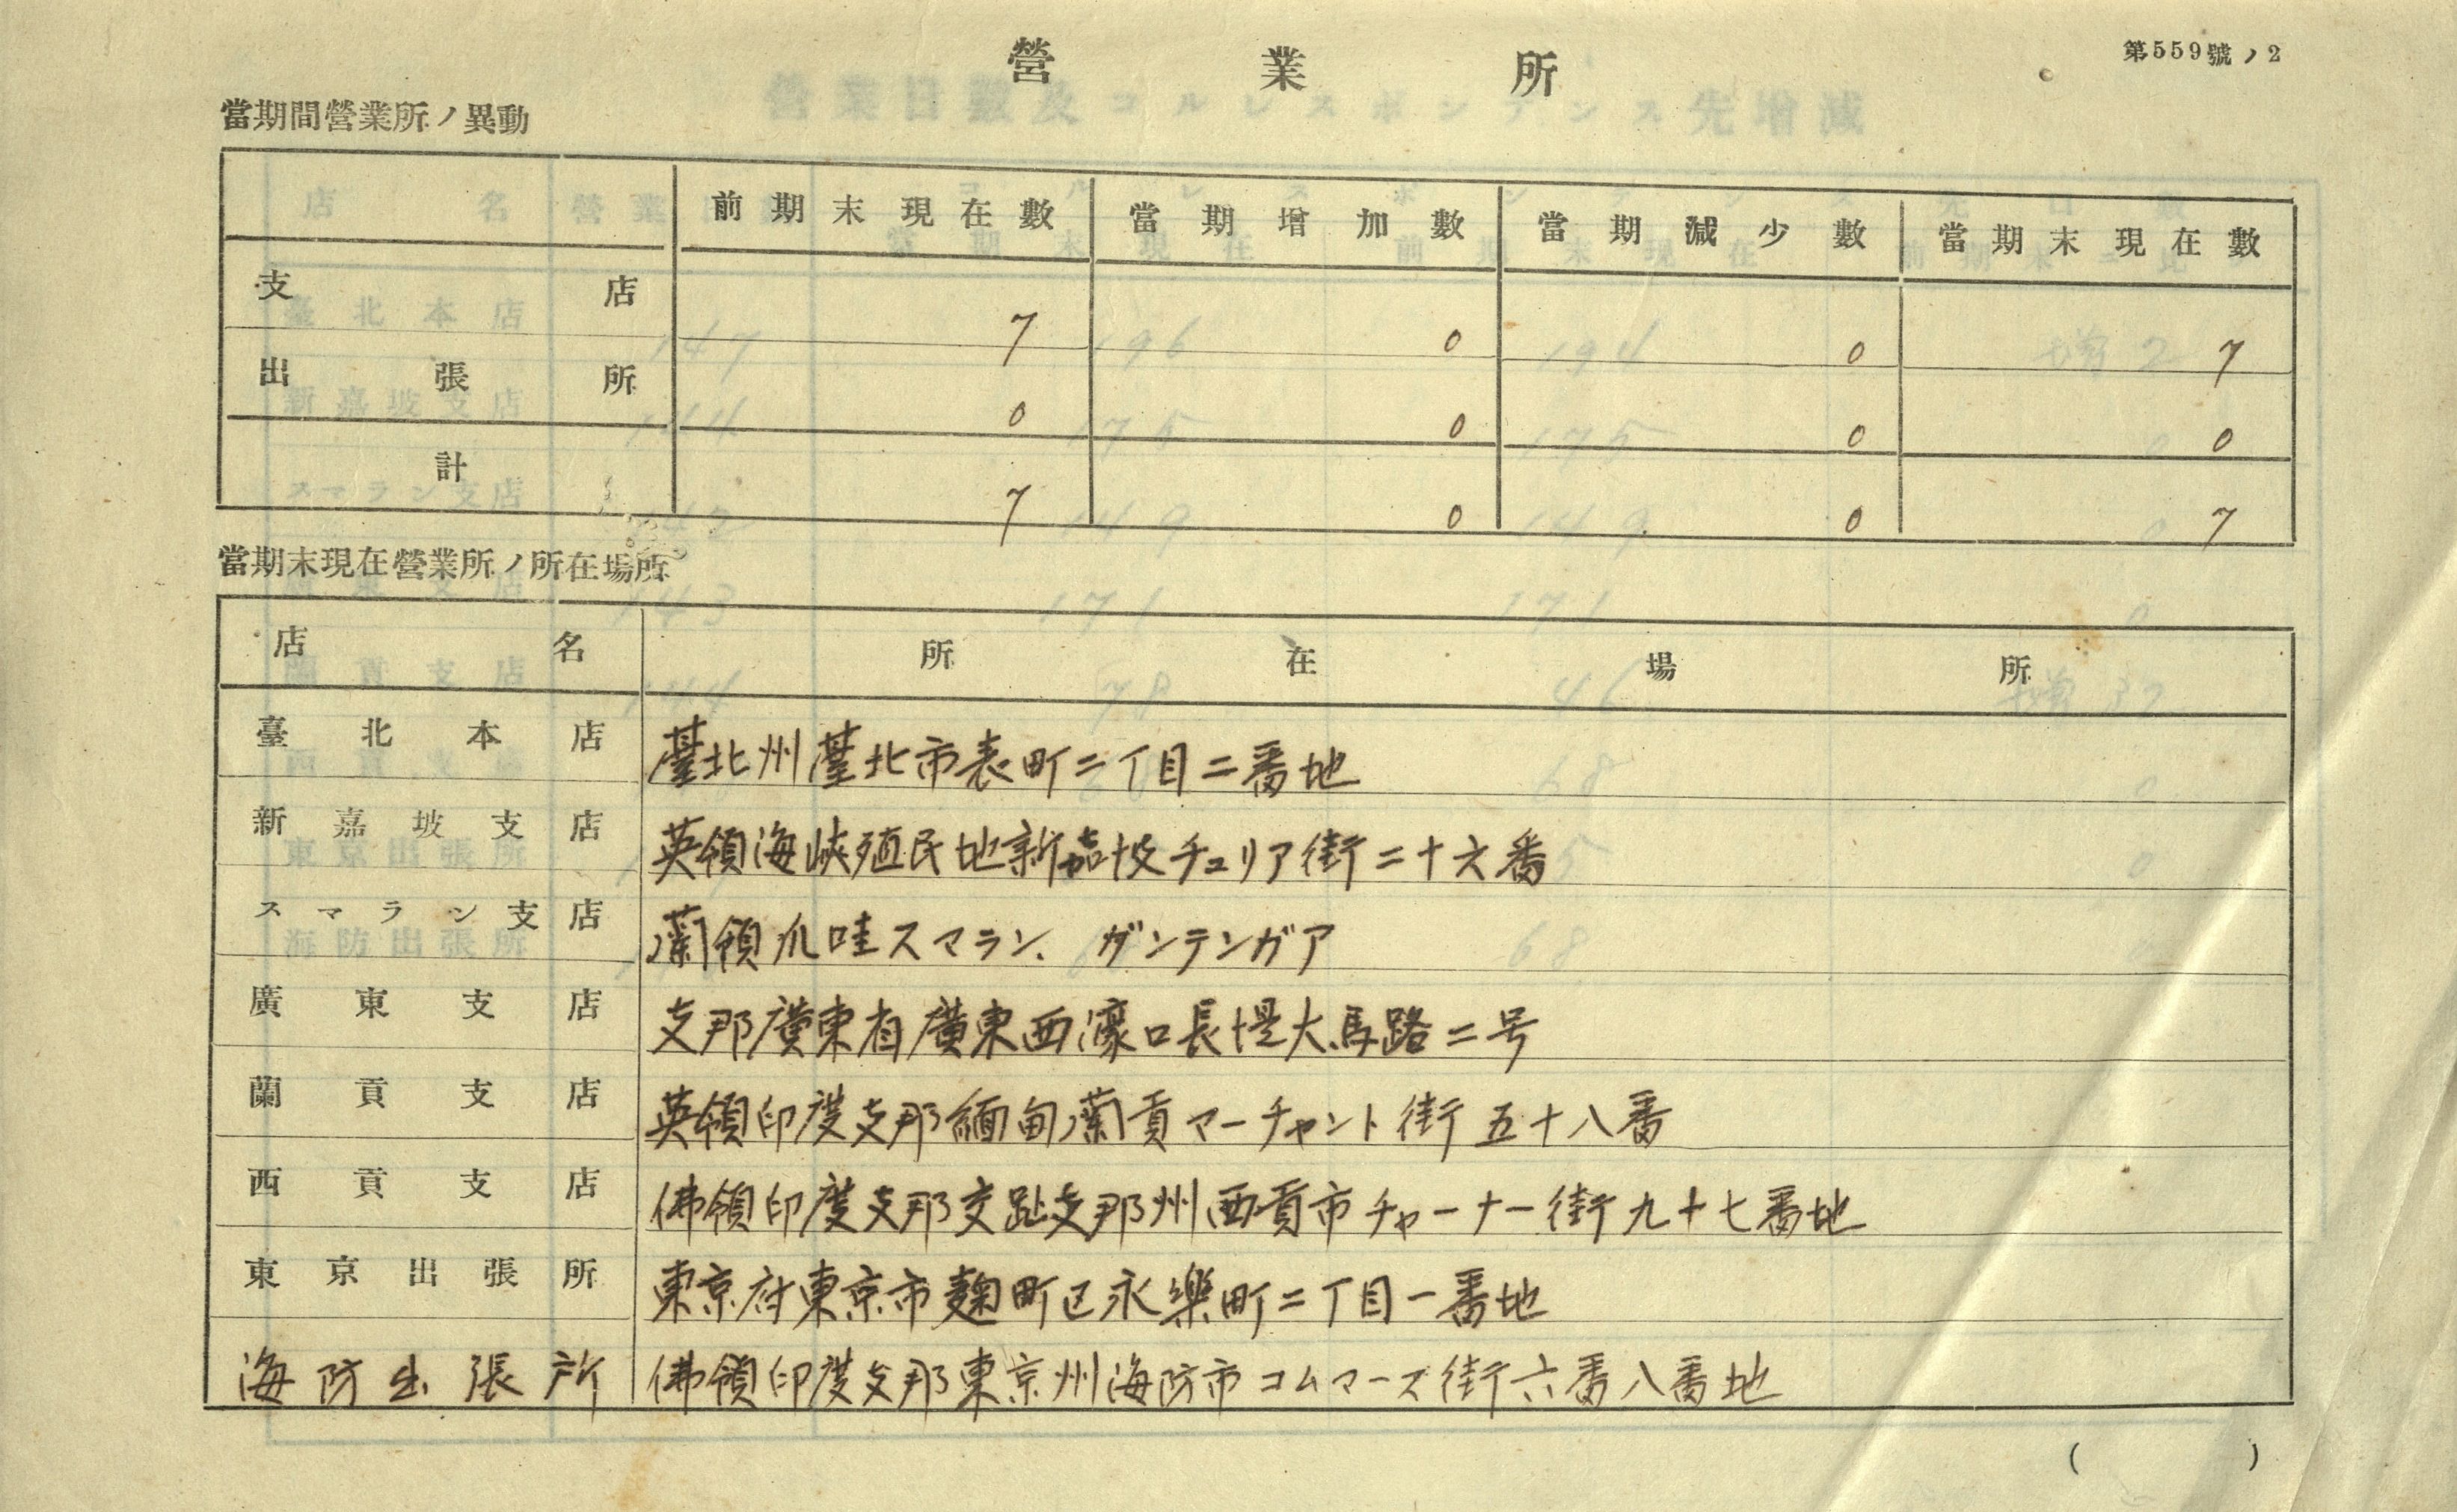 第559號ノ2
營業所
當期間營業所ノ異動
前期末現在數 當期增加數 當期減少數 當期末現在數
支店 7 0 0 7
出張所 0 0 0 0
計 7 0 0 7
當期末現在營業所ノ所在場所
店名 所在場所
臺北本店 臺北州臺北市表町二丁目二番地
新嘉坡支店 英領海峽殖民地新嘉坡チュリア街二十六番
スマラン支店 蘭領爪哇スマラン、ダンテンガア
廣東支店 支那廣東省廣東西濠口長堤大馬路二号
蘭貢支店 英領印度支那緬甸蘭貢マーチャント街五十八番
西貢支店 佛領印度支那交趾支那州西貢市チャーナー街九十七番地
東京出張所 東京府東京市麹町区永樂町二丁目一番地
海防出張所 佛領印度支那東京州海防市コムマーズ街六番八番地
( )